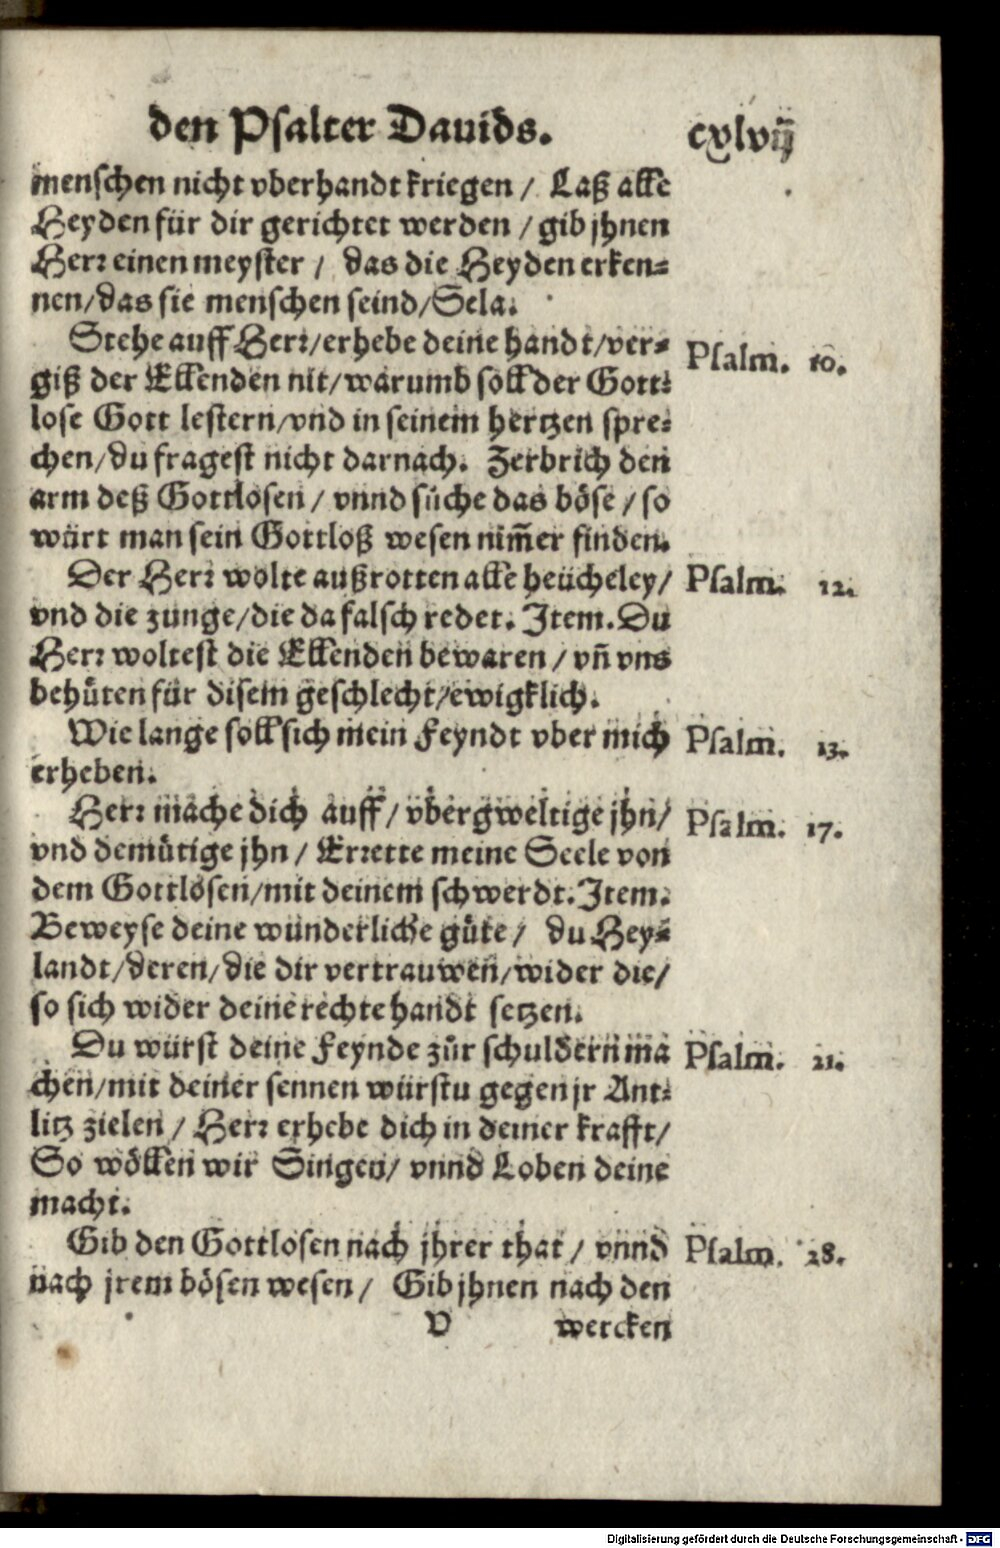 den Psalter Dauids. cxlvij
menschen nicht vberhandt kriegen / Laß alle
Heyden für dir gerichtet werden / gib jhnen
Herr einen meyster / das die Heyden erken-
nen/das sie menschen seind/Sela.
Stehe auff Herr/erhebe deine handt/ver-
Psalm. 10.
giß der Ellenden nit/warumb soll der Gott-
lose Gott lestern/vnd in seinem hertzen spre-
chen/du fragest nicht darnach. Zerbrich den
arm deß Gottlosen / vnnd süche das böse / so
würt man sein Gottloß wesen nim̃er finden.
Der Herr wolte außrotten alle heücheley/
Psalm. 12.
vnd die zunge/die da falsch redet. Item. Du
Herr woltest die Ellenden bewaren / vñ vns
behüten für disem geschlecht/ewigklich.
Wie lange soll sich mein Feyndt vber mich
Psalm. 13.
erheben.
Herr mache dich auff / vbergweltige jhn/
Psalm. 17.
vnd demütige jhn / Errette meine Seele von
dem Gottlosen/mit deinem schwerdt. Item.
Beweyse deine wunderliche güte / du Hey-
landt/deren/die dir vertrauwen/wider die/
so sich wider deine rechte handt setzen.
Du würst deine Feynde zůr schuldern ma
Psalm. 21.
chen/mit deiner sennen würstu gegen jr Ant-
litz zielen / Herr erhebe dich in deiner krafft/
So wöllen wir Singen/ vnnd Loben deine
macht.
Gib den Gottlosen nach jhrer that / vnnd
Psalm. 28.
nach jrem bösen wesen / Gib jhnen nach den
V wercken
Digitalisierung gefördert durch die Deutsche Forschungsgemeinschaft - DFG